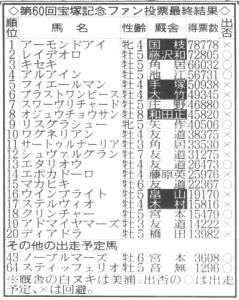 ◇第60回宝塚記念ファン投票最終結果◇
順位 馬名 性齢 厩舎 得票数 出否
1 アーモンドアイ 牝4 国枝 78778 ×
2 レイデオロ 牡5 藤沢和 72805
3 キセキ 牡5 角居 66032
4 アルアイン 牡5 池江 56731
5 フィエールマン 牡4 手塚
6 ブラストワンピース 牡4 大竹
7 スワーヴリチャード 牡5 庄野 46880
8 オジュウチョウサン 牡8 和田正
9 リスグラシュー 牝5 矢作
10 ワグネリアン 牡4 友道 38375
11 サートゥルナーリア 牡3 角居 33530
12 シュヴァルグラン 牡7 友道 31275
13 エタリオウ 牡4 友道 26473
14 エポカドーロ 牡4 藤原英 25976
15 マカヒキ 牡6 友道 22367
16 ウインブライト 牡5 畠山
17 ステルヴィオ 牡4 木村 15816
18 クリンチャー 牡5 宮本 15479
19 アドマイヤマーズ 牡3 友道 14222
20 ディアドラ 牝5 橋田 13982
その他の出走予定馬
43 ノーブルマーズ 牡6 宮本 3608
64 スティッフェリオ 牡5 音無 1296
※厩舎の白ヌキは美浦。出否の○は出走予定、×は回避。